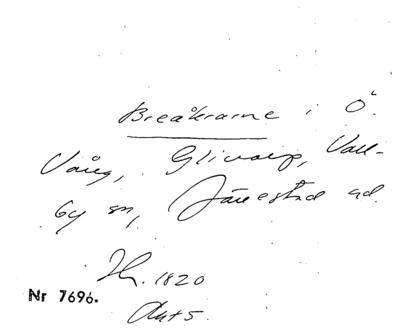 Breåkrarne i Ö.
Vång, Glivarp, Vall-
by sn, Järrestad hd.
H. 1820
Nr 7696.
Akt 5.